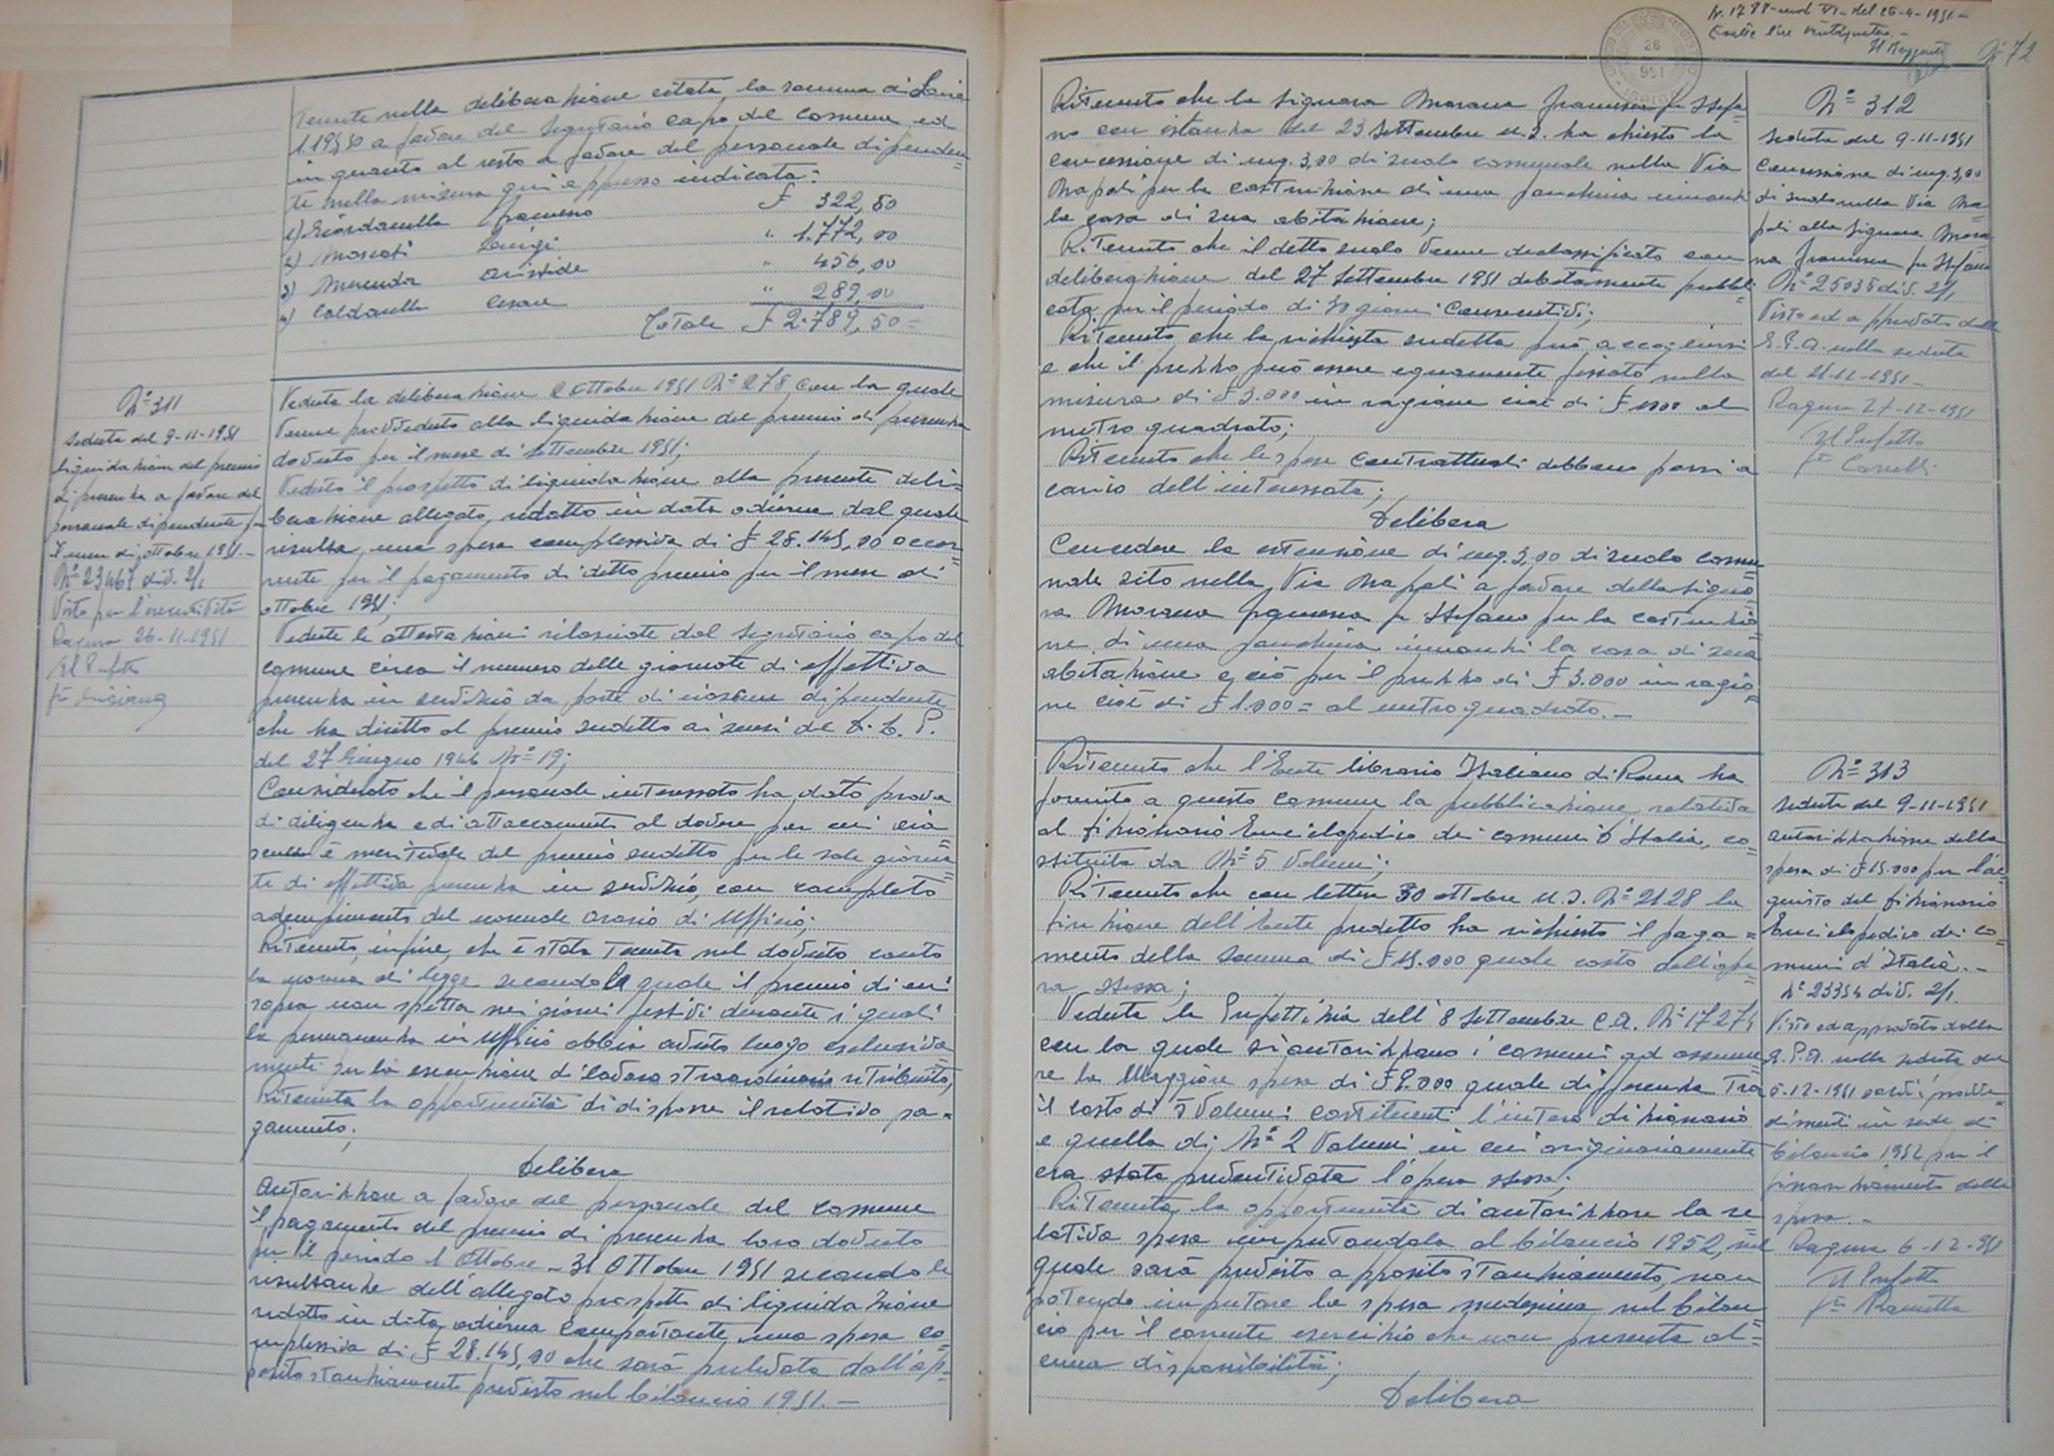 tenute nella deliberazione citata, la somma di Lire
1.195,50 a favore del Segretario capo del Comune ed
in quanto al resto a favore del personale dipenden=
te nella misura qui appresso indicata:
1) Giordanella £ 322,50
2) Moscati Luigi " 1.772,00
3) Merenda Aristide " 456,00
4) Caldarella Cesare " 289,00
Totale £ 2.789,50=
N° 311
Seduta del 9-11-1951
Liquidazione del premio
di presenza a favore del
personale dipendente pel
mese di ottobre 1951.-
N° 23467 div. 2/1
Visto per l'esecutività
Ragusa 26-11-1951
Il Prefetto
Veduta la deliberazione 2 ottobre 1951 N° 278 con la quale
venne provveduto alla liquidazione del premio di presenza
dovuto per il mese di Settembre 1951;
Veduto il prospetto di liquidazione alla presente deli=
berazione allegato, redatto in data odierna dal quale
risulta una spesa complessiva di £ 28.145,00 occor=
rente per il pagamento di detto premio per il mese di
ottobre 1951;
Vedute le attestazioni rilasciate dal Segretario capo del
comune circa il numero delle giornate di effettiva
presenza in servizio da parte di ciascun dipendente
che ha diritto al premio sudetto ai sensi del D.L.P.
del 27 Giugno 1946 N° 19;
Considerato che il personale interessato ha dato prova
di diligenza e di attaccamento al dovere per cui cia=
scuno è meritevole del premio sudetto per le sole giorna=
te di effettiva presenza in servizio, con completo
adempimento del normale orario di Ufficio;
Ritenuto, infine, che è stata tenuta nel dovuto conto
la norma di legge secondo la quale il premio di cui
sopra non spetta nei giorni festivi durante i quali
la permanenza in Ufficio abbia avuto luogo esclusiva=
mente per la esecuzione di lavoro straordinario retribuito;
Ritenuta la opportunità di disporre il relativo pa=
gamento;
Delibera
Autorizzare a favore del personale del comune
il pagamento del premio di presenza loro dovuto
per il periodo 1 ottobre - 31 ottobre 1951 secondo le
risultanze dell'allegato prospetto di liquidazione
redatto in data odierna comportante una spesa co=
mplessiva di £ 28.145,00 che sarà prelevata dall'ap=
posito stanziamento previsto nel bilancio 1951.-
26
951
N° 72
Ritenuto che la Signora Morana Francesca fu Stefa=
no con istanza del 23 Settembre u.s. ha chiesto la
concessione di mq. 3,00 di suolo comunale nella Via
Napoli per la costruzione di una panchina innanzi
la casa di sua abitazione;
Ritenuto che il detto suolo venne declassificato con
deliberazione del 27 Settembre 1951 debitamente pubbli=
cata per il periodo di 30 giorni consecutivi;
Ritenuto che la richiesta sudetta può accogliersi
e che il prezzo può essere equamente fissato nella
misura di £ 3.000 in ragione cioè di £ 1000 al
metro quadrato;
Ritenuto che le spese contrattuali debbono porsi a
carico dell'interessata;
Delibera
Concedere la estensione di mq. 3,00 di suolo comu=
nale sito nella Via Napoli a favore della Signo=
ra Morana Francesca fu Stefano per la costruzio=
ne di una panchina innanzi la casa di sua
abitazione e ciò per il prezzo di £ 3.000 in ragio=
ne cioè di £ 1.000= al metro quadrato.-
N° 312
Seduta del 9-11-1951
Concessione di mq. 3,00
di suolo nella Via Na=
poli alla Signora Mora=
na Francesca fu Stefano
N° 25035 div. 2/1
Visto ed approvato dalla
G.P.A. nella seduta
del 21-12-1951-
Ragusa 27-12-1951
Il Prefetto
Ritenuto che l'Ente librario Italiano di Roma ha
fornito a questo comune la pubblicazione relativa
al Dizionario Enciclopedico dei comuni d'Italia, co=
stituita da N° 5 volumi;
Ritenuto che con lettera 30 ottobre u.s. N° 2128 la
Direzione dell'Ente predetto ha richiesto il paga=
mento della somma di £ 15.000 quale costo dell'ope=
ra stessa;
Veduta la Prefettizia dell'8 Settembre c.a. N° 17274
con la quale si autorizzano i comuni ad assume=
re la maggiore spesa di £ 9.000 quale differenza tra
il costo di 5 volumi costituenti l'intero dizionario
e quella di N° 2 volumi in cui originariamente
era stata preventivata l'opera stessa;
Ritenuta la opportunità di autorizzare la re=
lativa spesa imputandola al bilancio 1952, nel
quale sarà previsto apposito stanziamento, non
potendo imputare la spesa medesima nel bilan=
cio per il corrente esercizio che non presenta al=
cuna disponibilità;
Delibera
N° 313
Seduta del 9-11-1951
Autorizzazione della
spesa di £ 15.000 per l'ac=
quisto del Dizionario
Enciclopedico dei co=
muni d'Italia.-
N° 23354 div. 2/1
Visto ed approvato dalla
G.P.A. nella seduta del
6-12-1951 salvi i provve=
dimenti in sede di
bilancio 1952 per il
finanziamento della
spesa.-
Ragusa 6-12-951
Il Prefetto